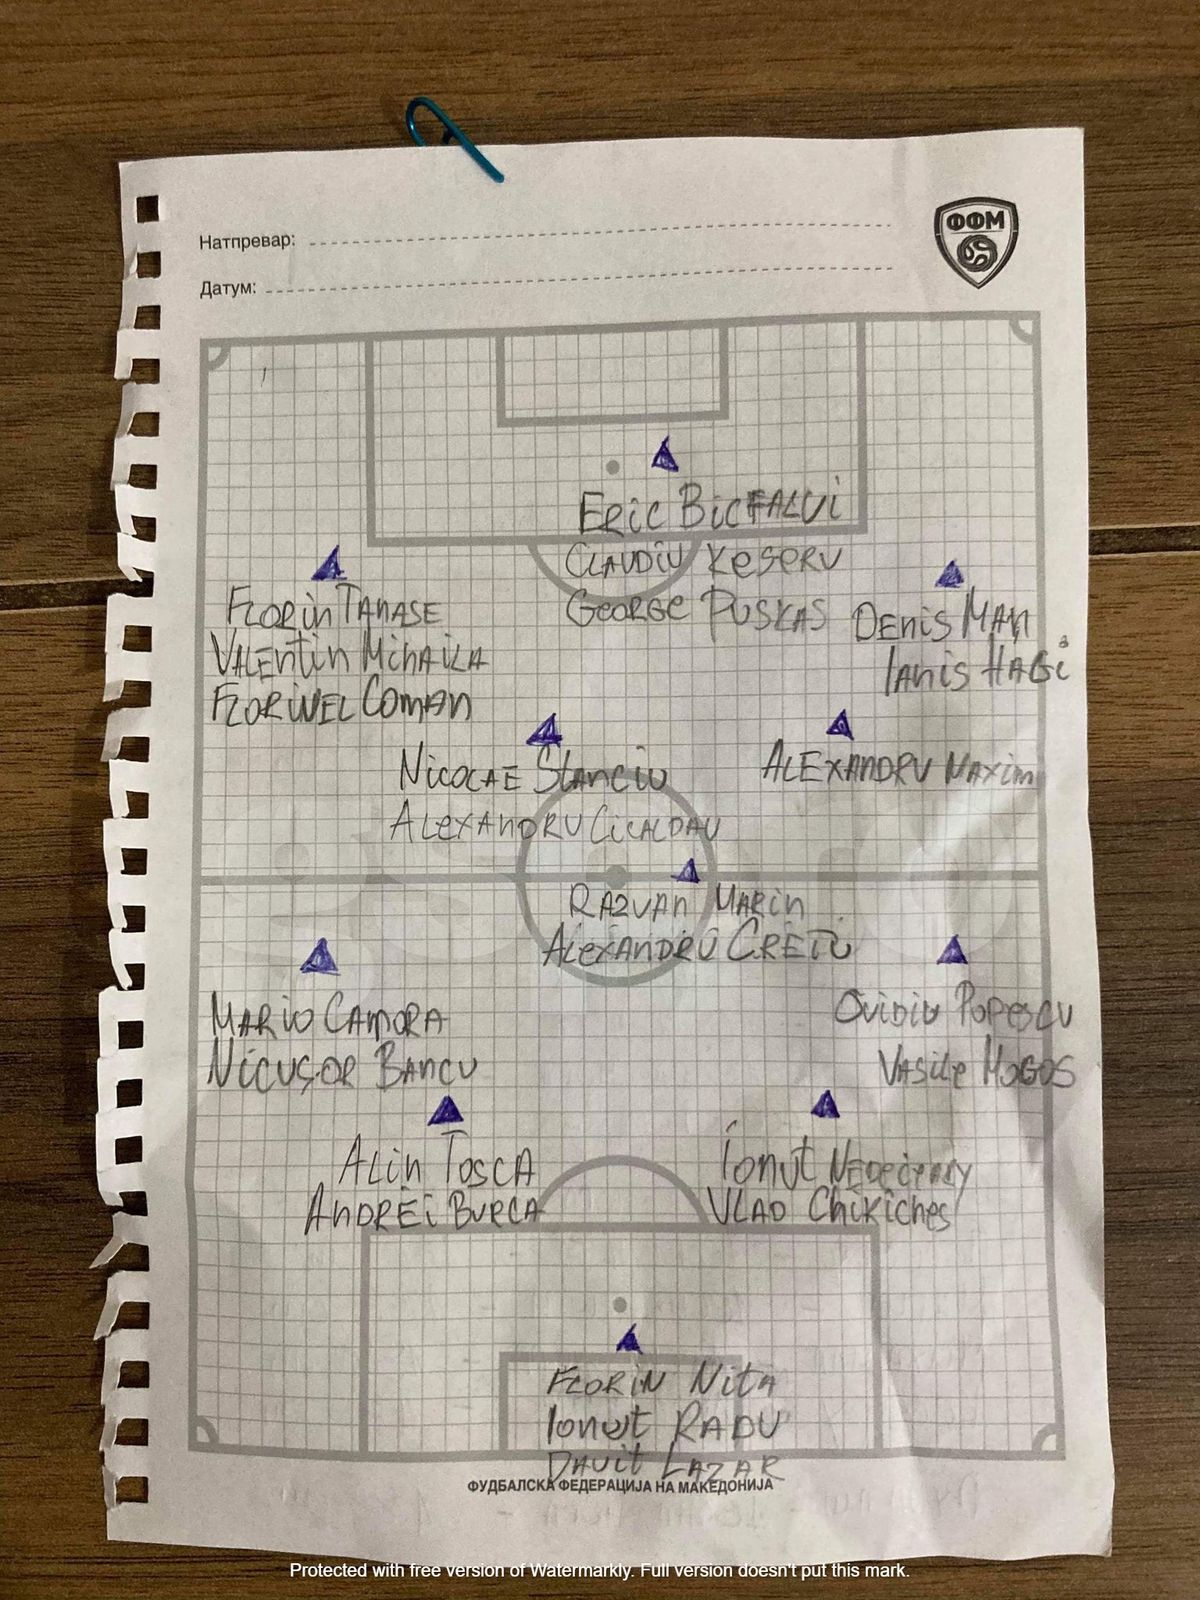 Натпревар:
ФФМ
Датум:
Eric Bicfalvi
Claudiu Keseru
George Puskas
Florin Tanase
Valentin Mihaila
Florinel Coman
Denis Man
Ianis Hagi
Nicolae Stanciu
Alexandru Cicaldau
Alexandru Maxim
Razvan Marin
Alexandru Cretu
Mario Camora
Nicuşor Bancu
Ovidiu Popescu
Vasile Mogos
Alin Tosca
Andrei Burca
Ionut
Vlad Chikiches
Florin Nita
Ionut Radu
David Lazar
ФУДБАЛСКА ФЕДЕРАЦИЈА НА МАКЕДОНИЈА
Protected with free version of Watermarkly. Full version doesn't put this mark.